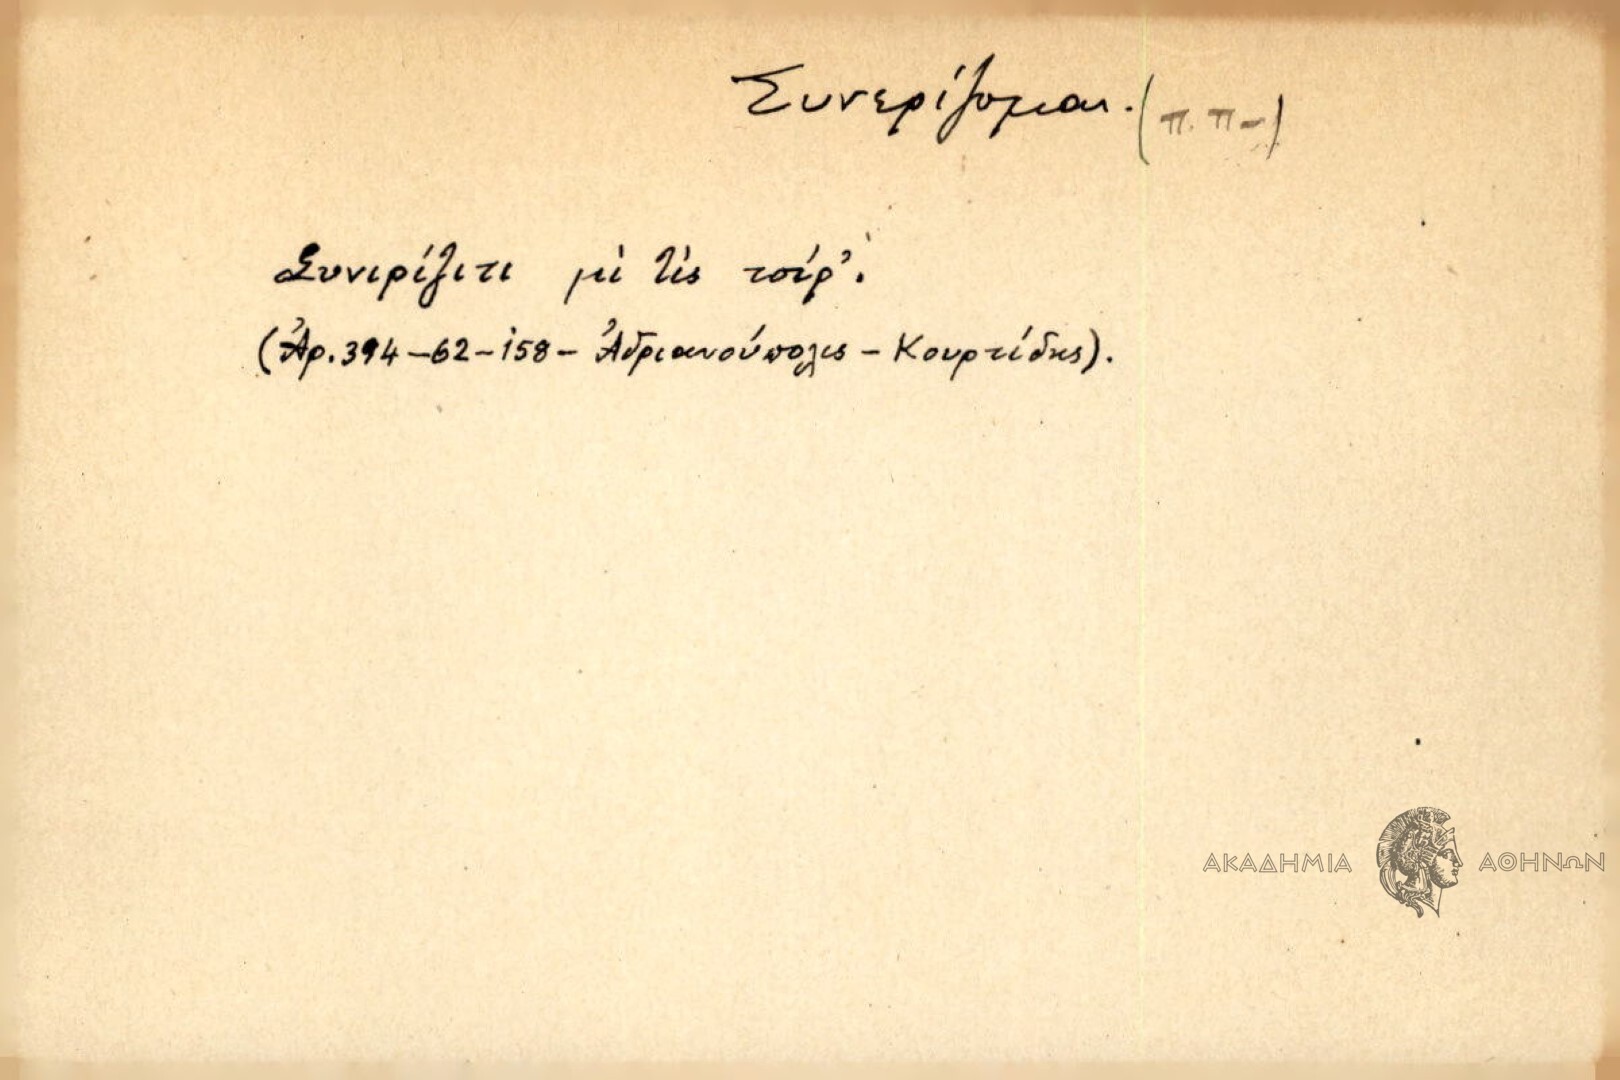 Συνερίζομαι. (π. π-)
Συνιρίζιτι μὶ τὶς τσίρ'.
(Ἀρ. 394-62-158- Ἀδριανούπολις - Κουρτίδης).
ΑΚΑΔΗΜΙΑ ΑΘΗΝΩΝ